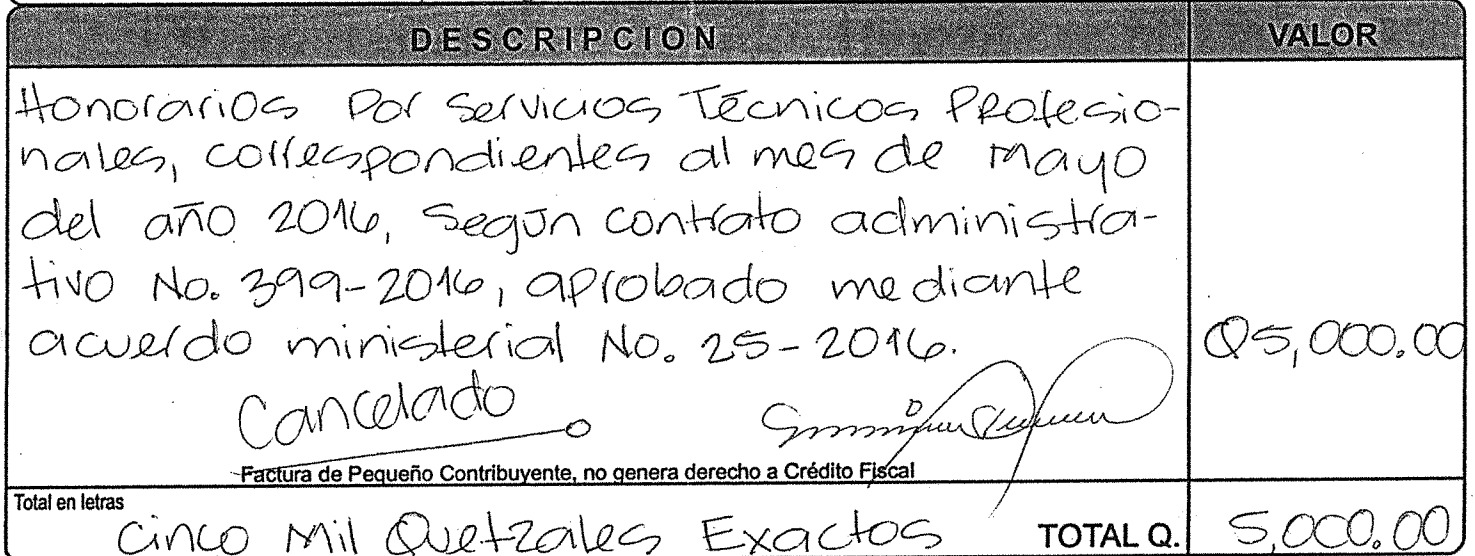 DESCRIPCION VALOR
Honorarios Por Servicios Técnicos Profesio-
nales, correspondientes al mes de Mayo
del año 2016, Según contrato administra-
tivo No. 399-2016, aprobado mediante
acuerdo ministerial No. 25-2016. Q5,000.00
Cancelado
Factura de Pequeño Contribuyente, no genera derecho a Crédito Fiscal
Total en letras
Cinco Mil Quetzales Exactos TOTAL Q. 5,000.00